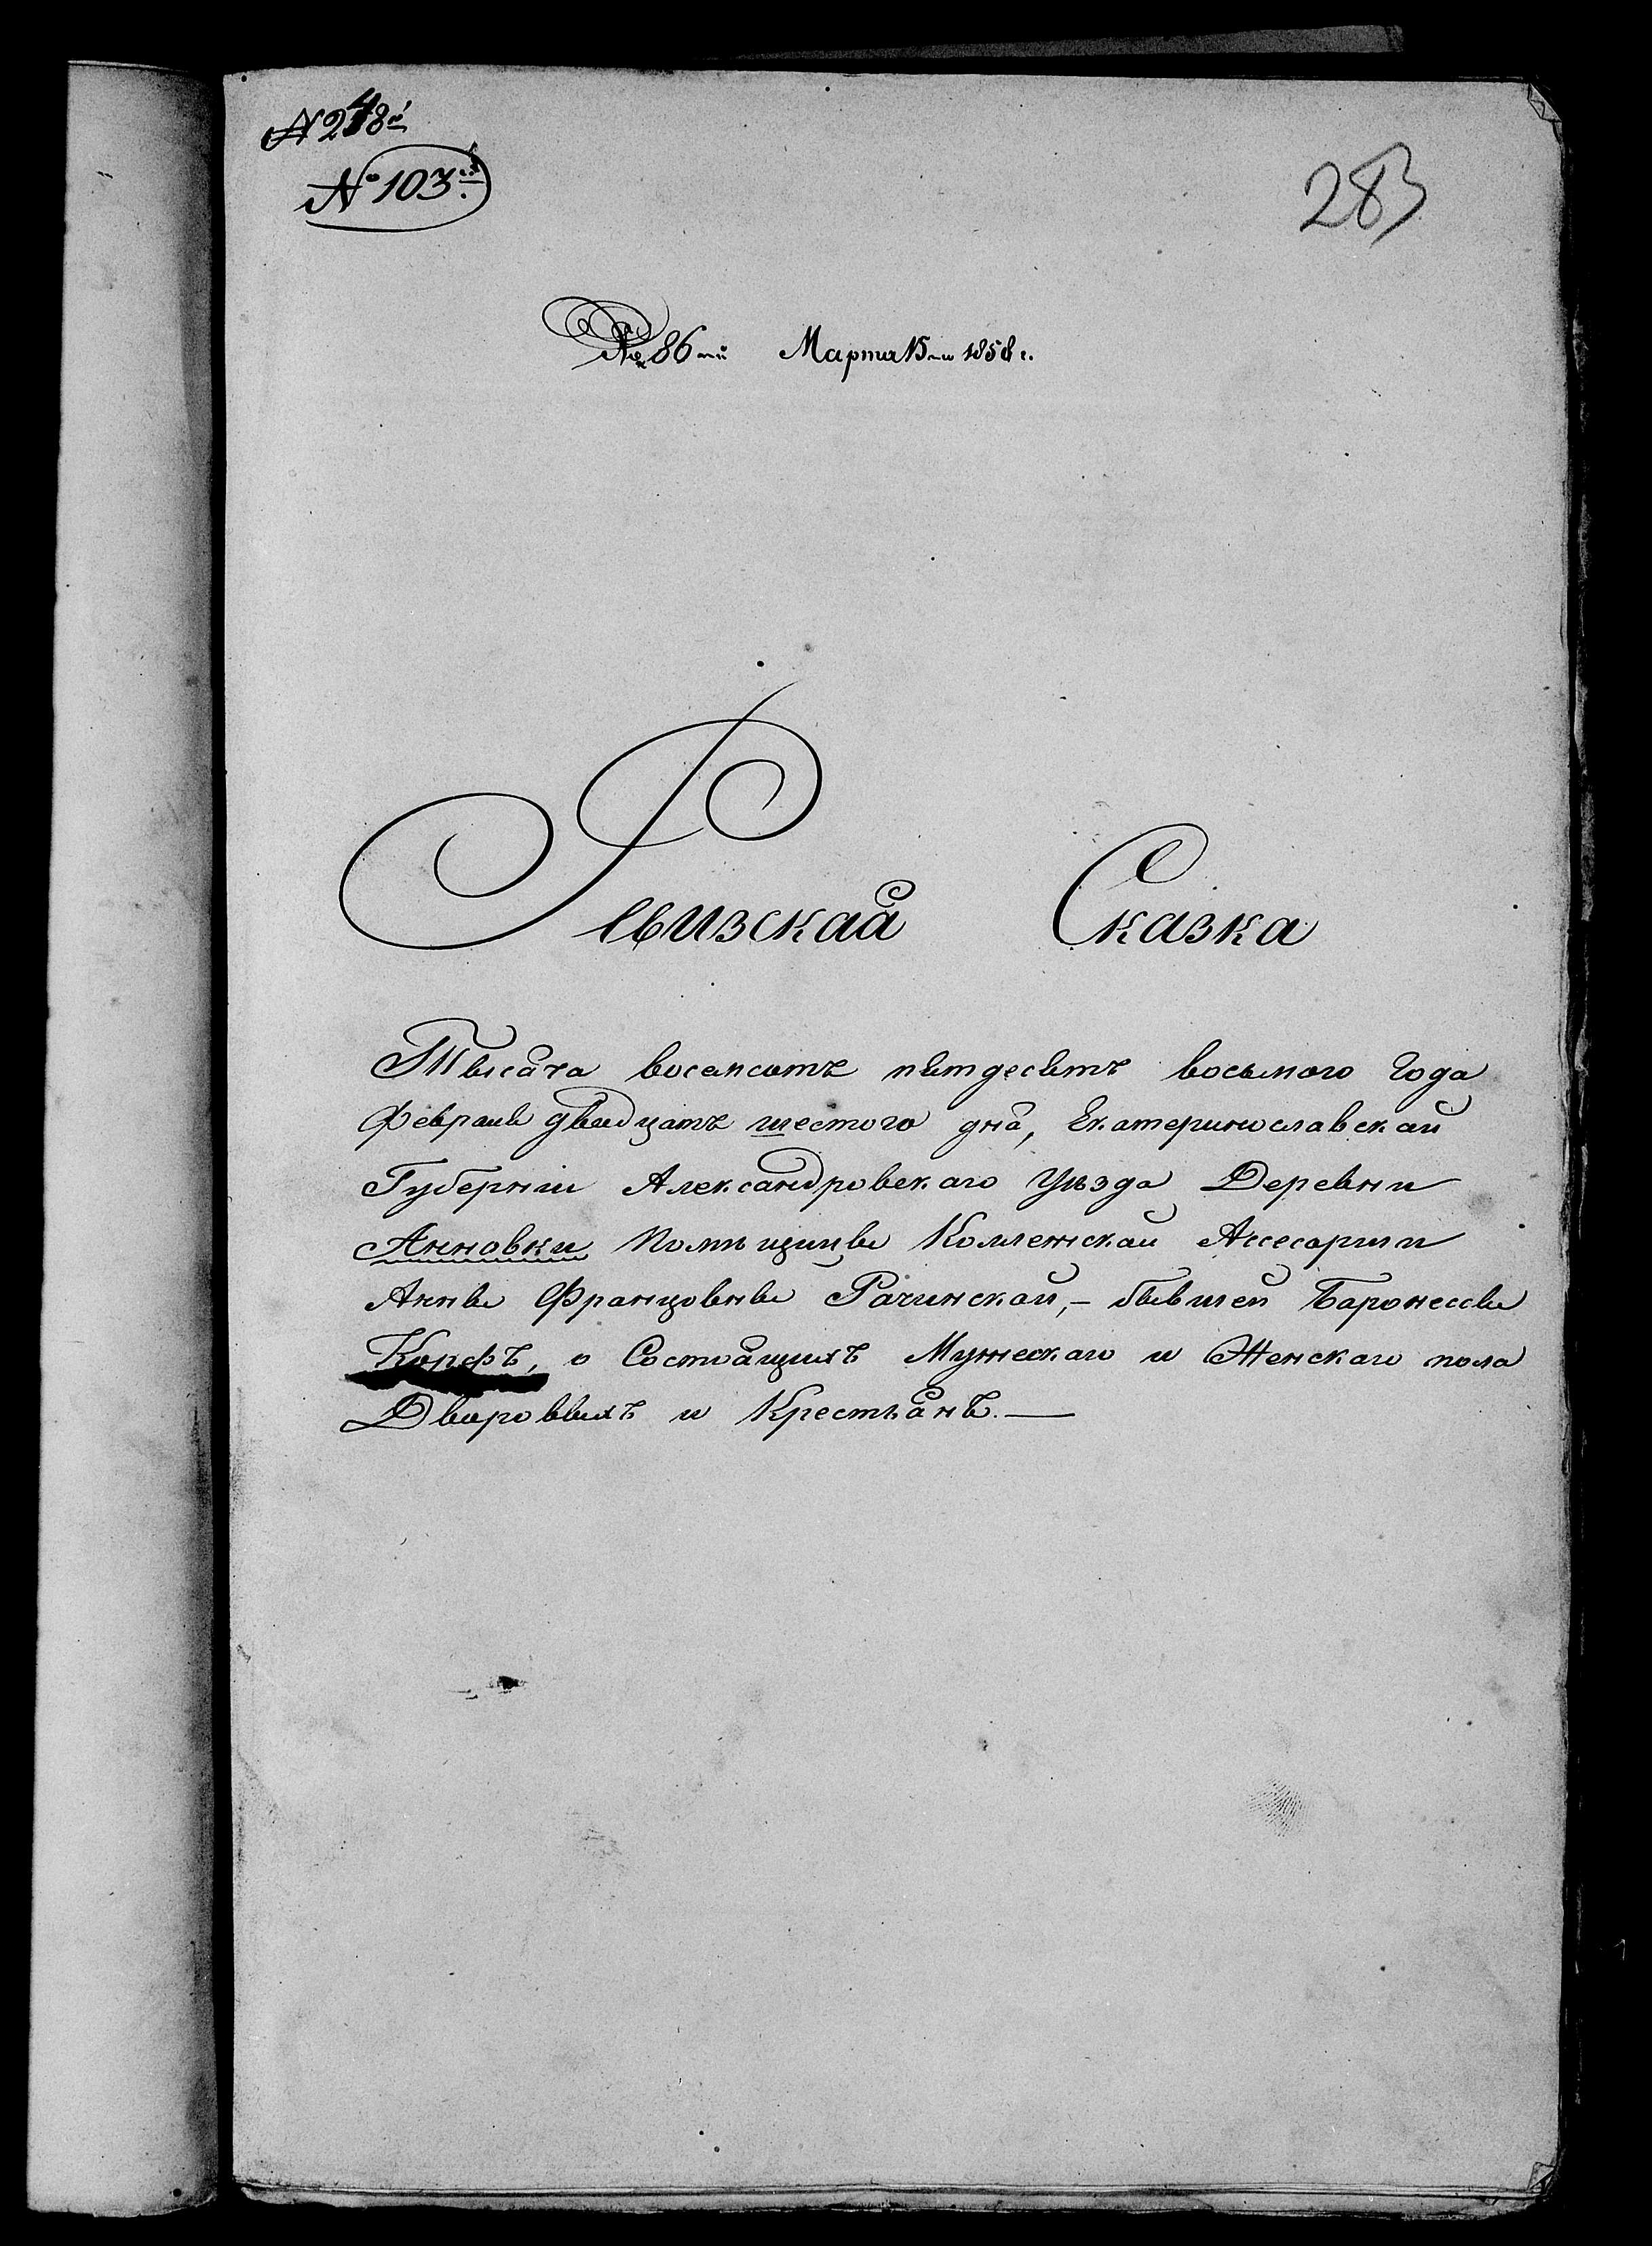 № 248й
№ 103й
283
№ 86й Марта 15го 1858 г.
Ревизская Сказка
Тысяча восемсотъ пятдесятъ восьмого Года
Февраля двадцать шестого дня, Екатеринославской
Губерніи Александровскаго Уѣзда Деревни
Анновки Помѣщицы Коллежской Ассесорши
Анны Францовны Рачинской, – бывшей Баронессы
Корфъ, о Состоящихъ Мужескаго и Женскаго пола
Дворовыхъ и Крестьянъ. —